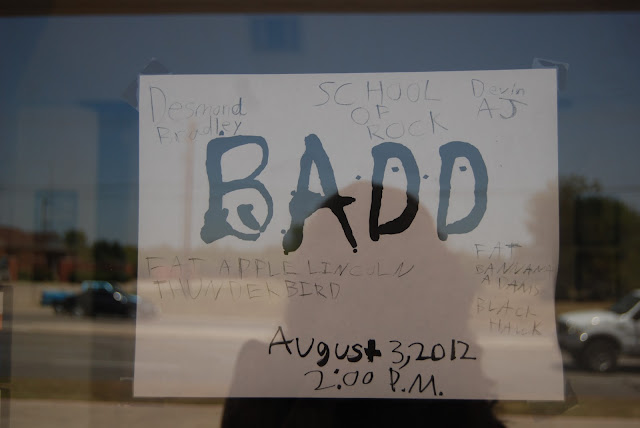 Desmond
Bradley
SCHOOL
OF
ROCK
Devin
AJ
B.A.D.D
FAT APPLE LINCOLN
THUNDERBIRD
FAT
BANVANA
ADAMS
BLACK
HAWK
August 3, 2012
2:00 P.M.